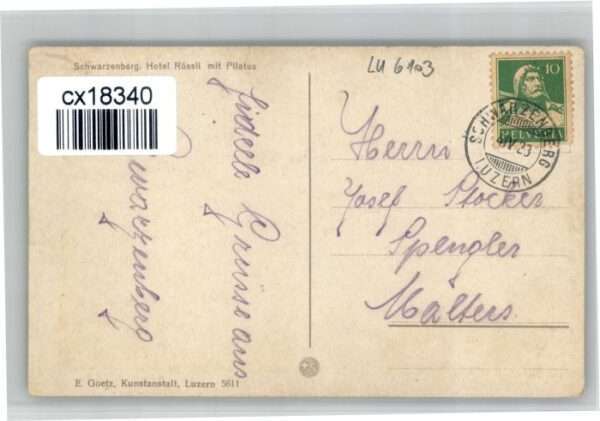 Schwarzenberg. Hotel Rössli mit Pilatus
LU 6103
cx18340
10
HELVETIA
SCHWARZENBERG
IV 23
LUZERN
Fidele Grüsse aus
Schwarzenberg
Herrn
Josef Stocker
Spengler
Malters.
E. Goetz, Kunstanstalt, Luzern 5611